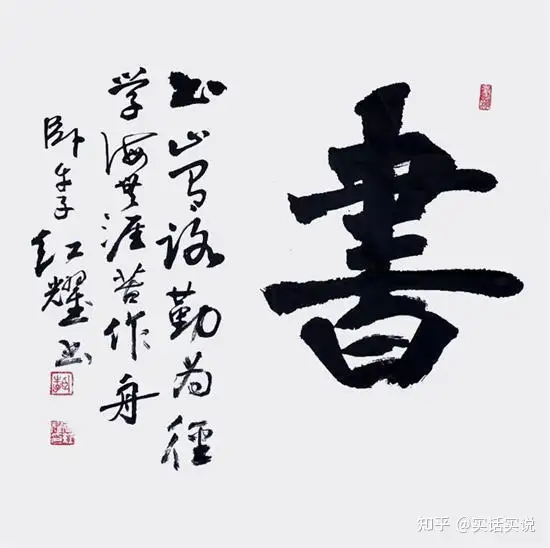 書
书山有路勤为徑
学海無涯苦作舟
卧牛子红耀书
知乎 @实话实说